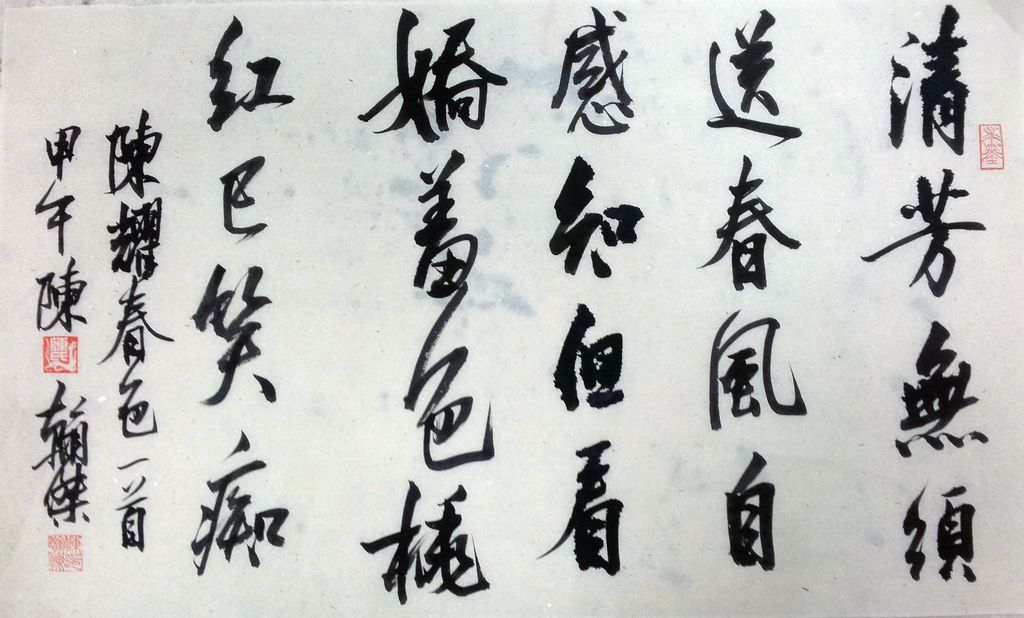 清芳無須
送春風自
感知但看
嬌羞色桃
紅已笑痴
陳耀春色一首
甲午陳翰傑